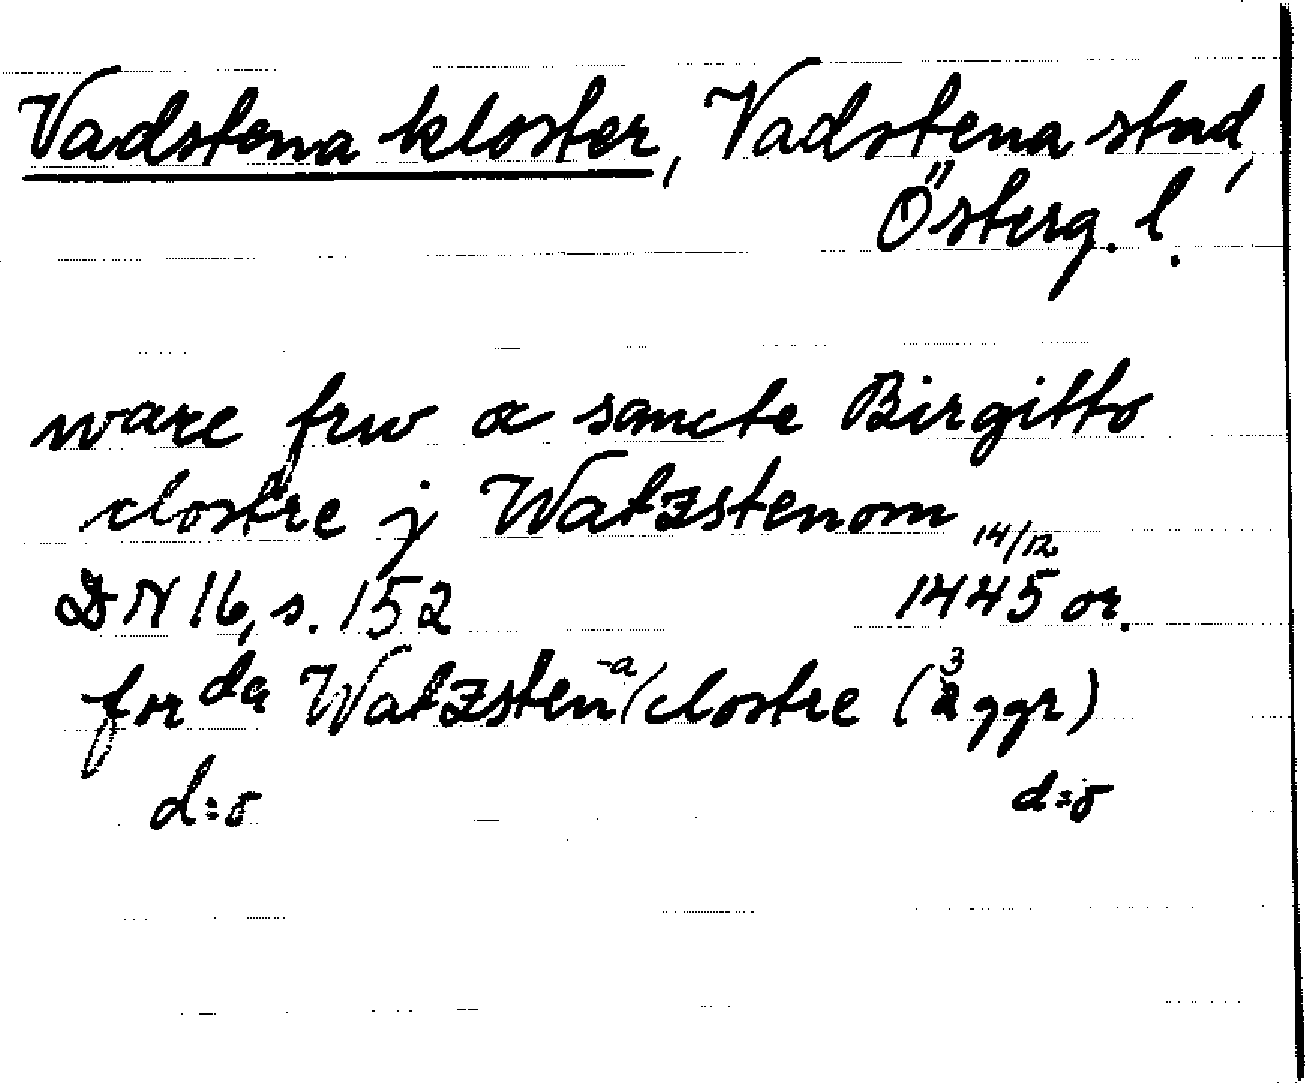 Vadstena kloster, Vadstena stad,
Österg. l.
ware frw oc sancte Birgitto
clostre j Watzstenom
14/12
DN 16, s. 152 1445 or.
for da Watzsten-a/clostre (3 ggr)
d:o d:o